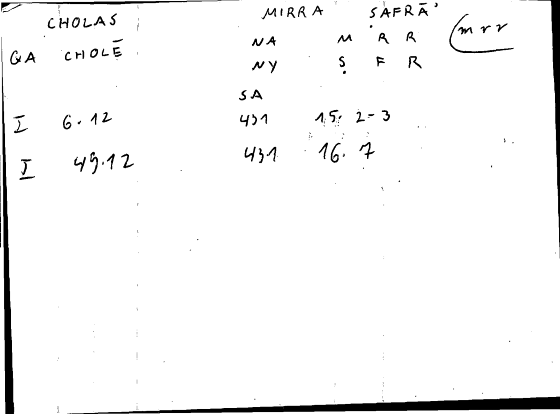 CHOLAS MIRRA ṢAFRĀ'
GA CHOLĒ NA M R R (mrr
NY Ṣ F R
SA
I 6.12 431 15. 2-3
I 49.12 431 16. 7